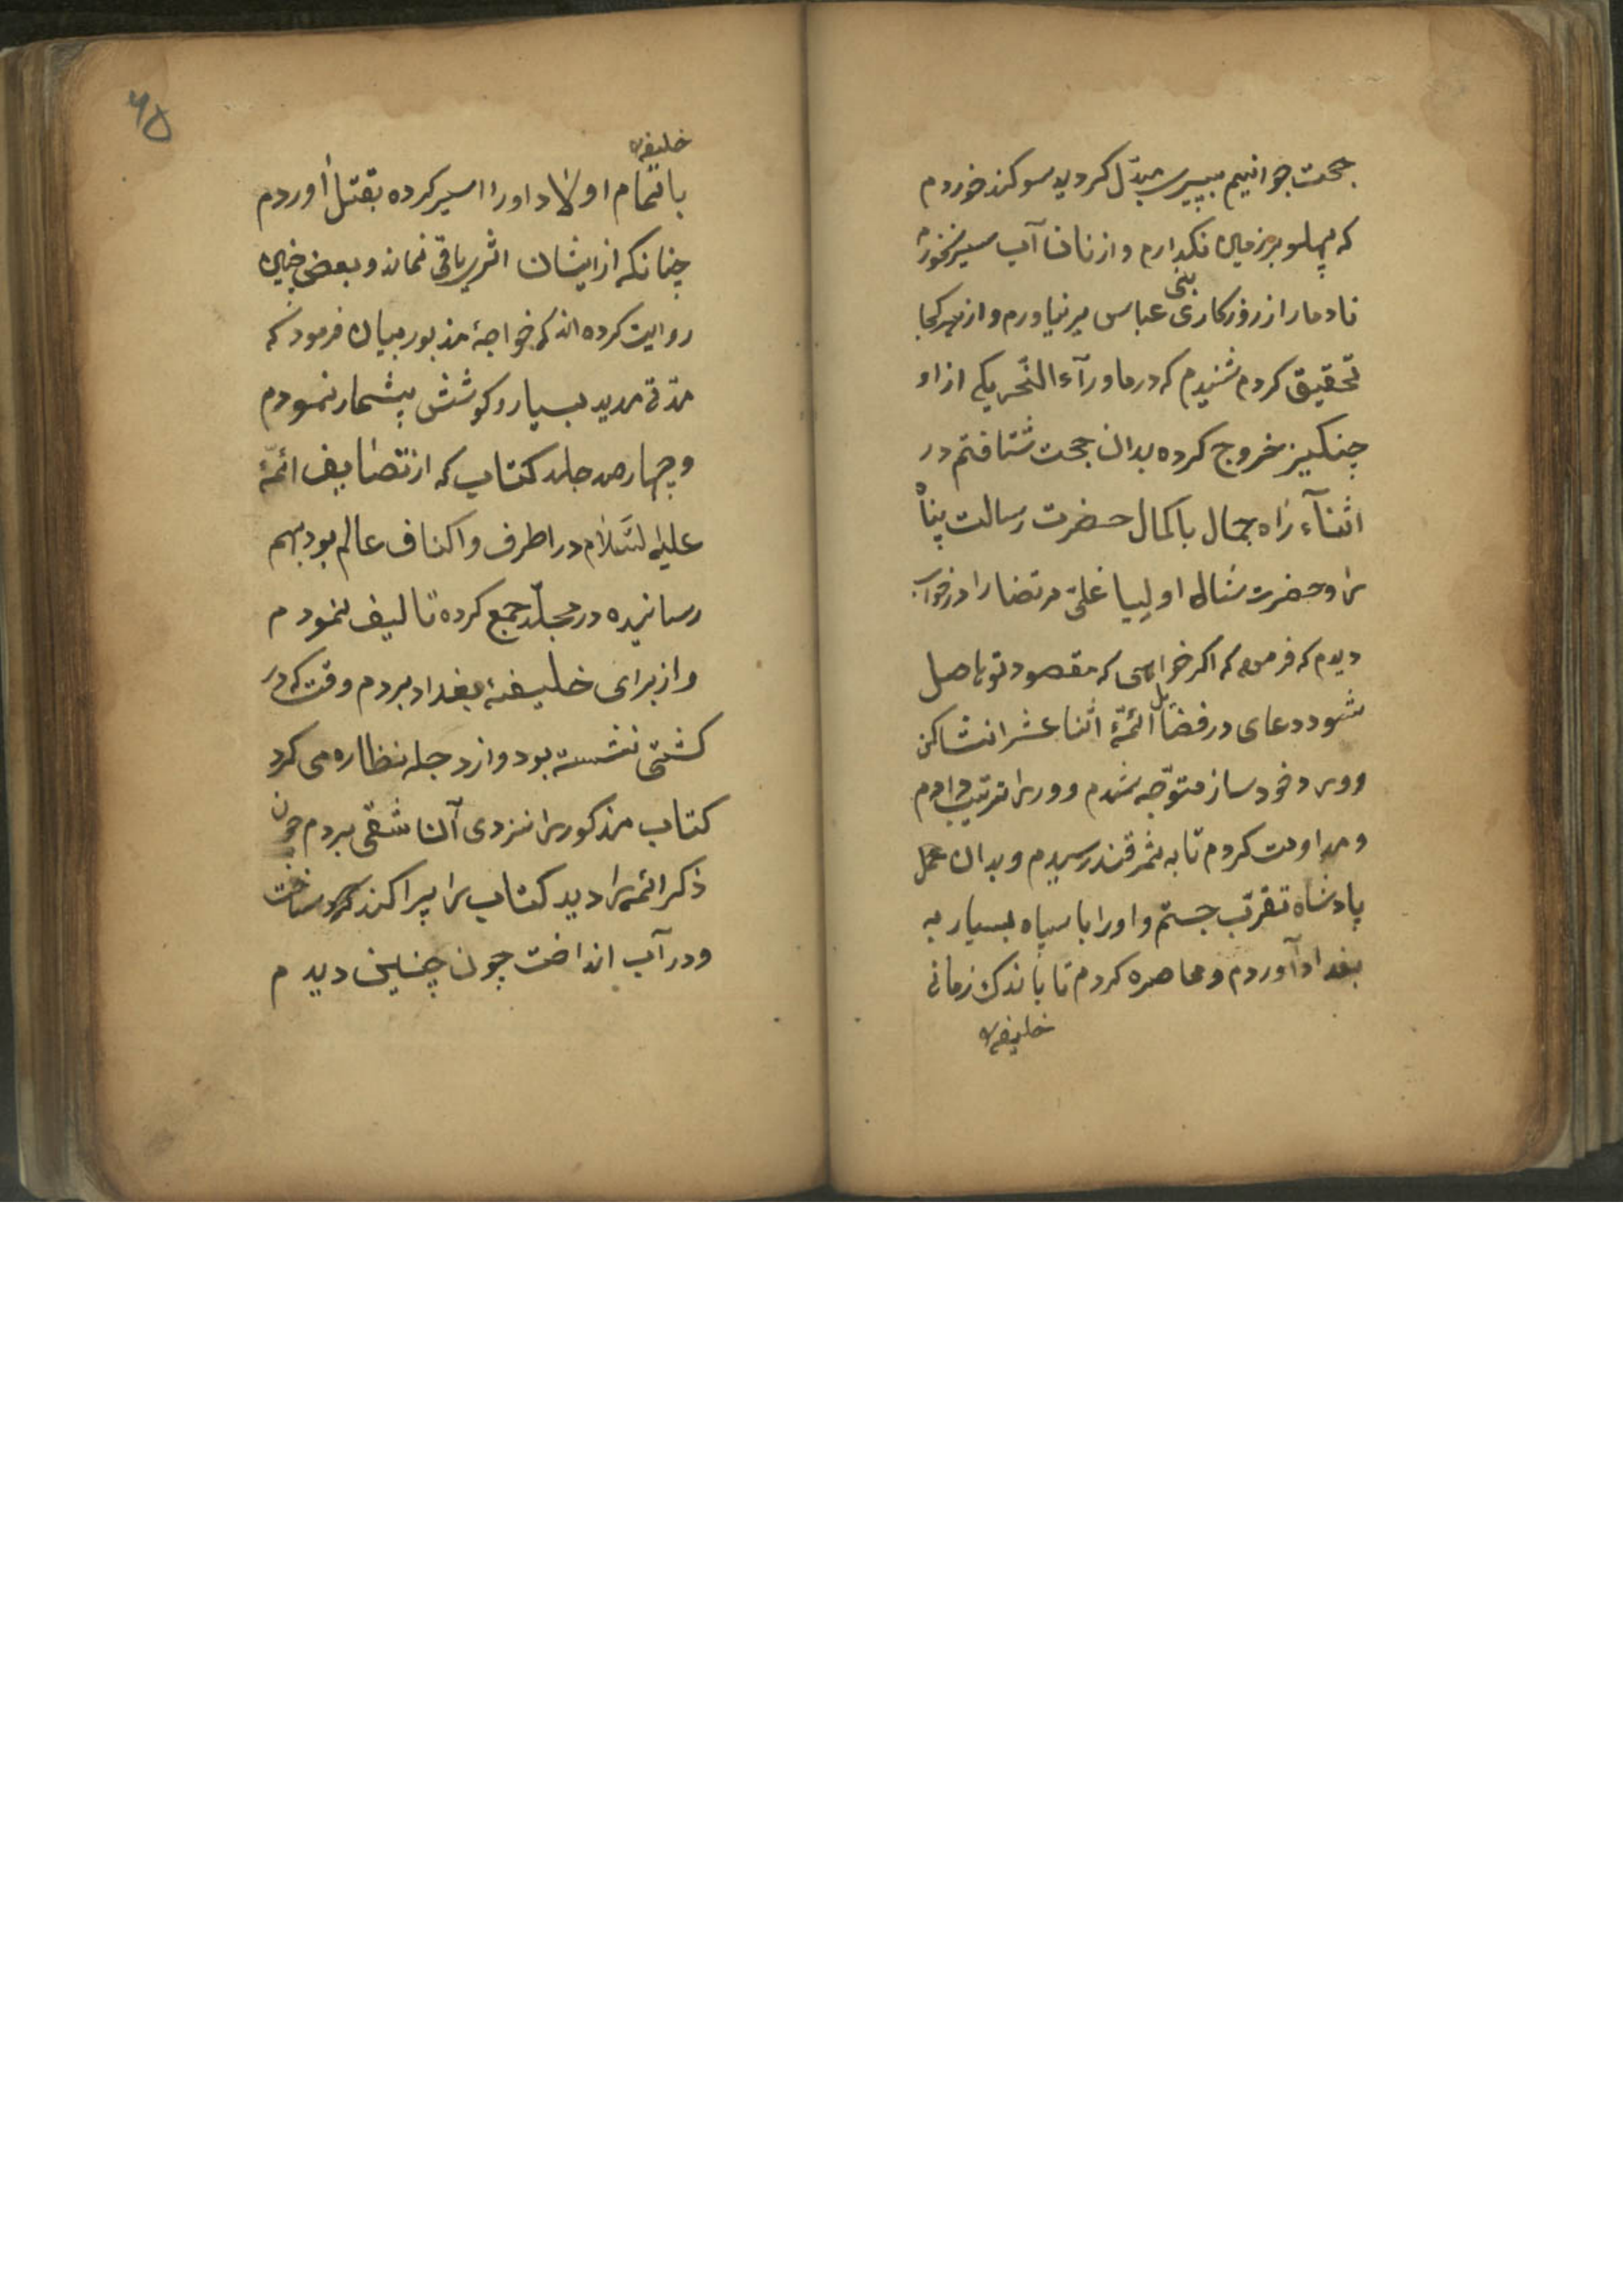 جحت جوانیم بپیری مبدّل کردید سوکند خوردم
که پهلو بر زمین نکذارم و از نان و آب سیر نخورم
تا دمار از روزکار بنی عباس بر نیاورم و از هر کجا
تحقیق کردم شنیدم که در ماورآء النّحر یکی از او
چنکیز خروج کرده بدان جحت شتافتم در
اثنآء راه جمال باکمال حضرت رسالت پناه
را و حضرت شاه اولیا علیّ مرتضا را در خواب
دیدم که فرمود که اکر خواهی که مقصود تو حاصل
شود دعای در فضایل ائمّهٔ اثنا عشر انشا کن
و ورد خود ساز متوّجه شدم و ورد را ترتیب دادم
و مداومت کردم تا به ثمرقند رسیدم و بدان عمل
پادشاه تقرّب جستم و او را با سپاه بسیار به
بغداد آوردم و محاصره کردم تا باندک زمانی
خلیفه
۶۵
خلیفه
با تمام اولاد او را اسیر کرده بقتل آوردم
چنانکه از ایشان اثری باقی نماند و بعضی چنین
روایت کرده اند که خواجهٔ مذبور میان فرمود که
مدّتی مدید بسیار و کوشش بیشمار نمودم
و چهارصد جلد کتاب که از تصانیف ائمّهٔ
علیه السّلام در اطرف و اکناف عالم بود بهم
رسانیده در مجلّد جمع کرده تالیف نمودم
و از برای خلیفهٔ بغداد بردم وقت که در
کشتی نشسته بود و از دجله نظاره می کرد
کتاب مذکور را نزدی آن شقی بردم چون
ذکر ائمه را دید کتاب را پراکنده ساخت
و در آب انداخت چون چنین دیدم